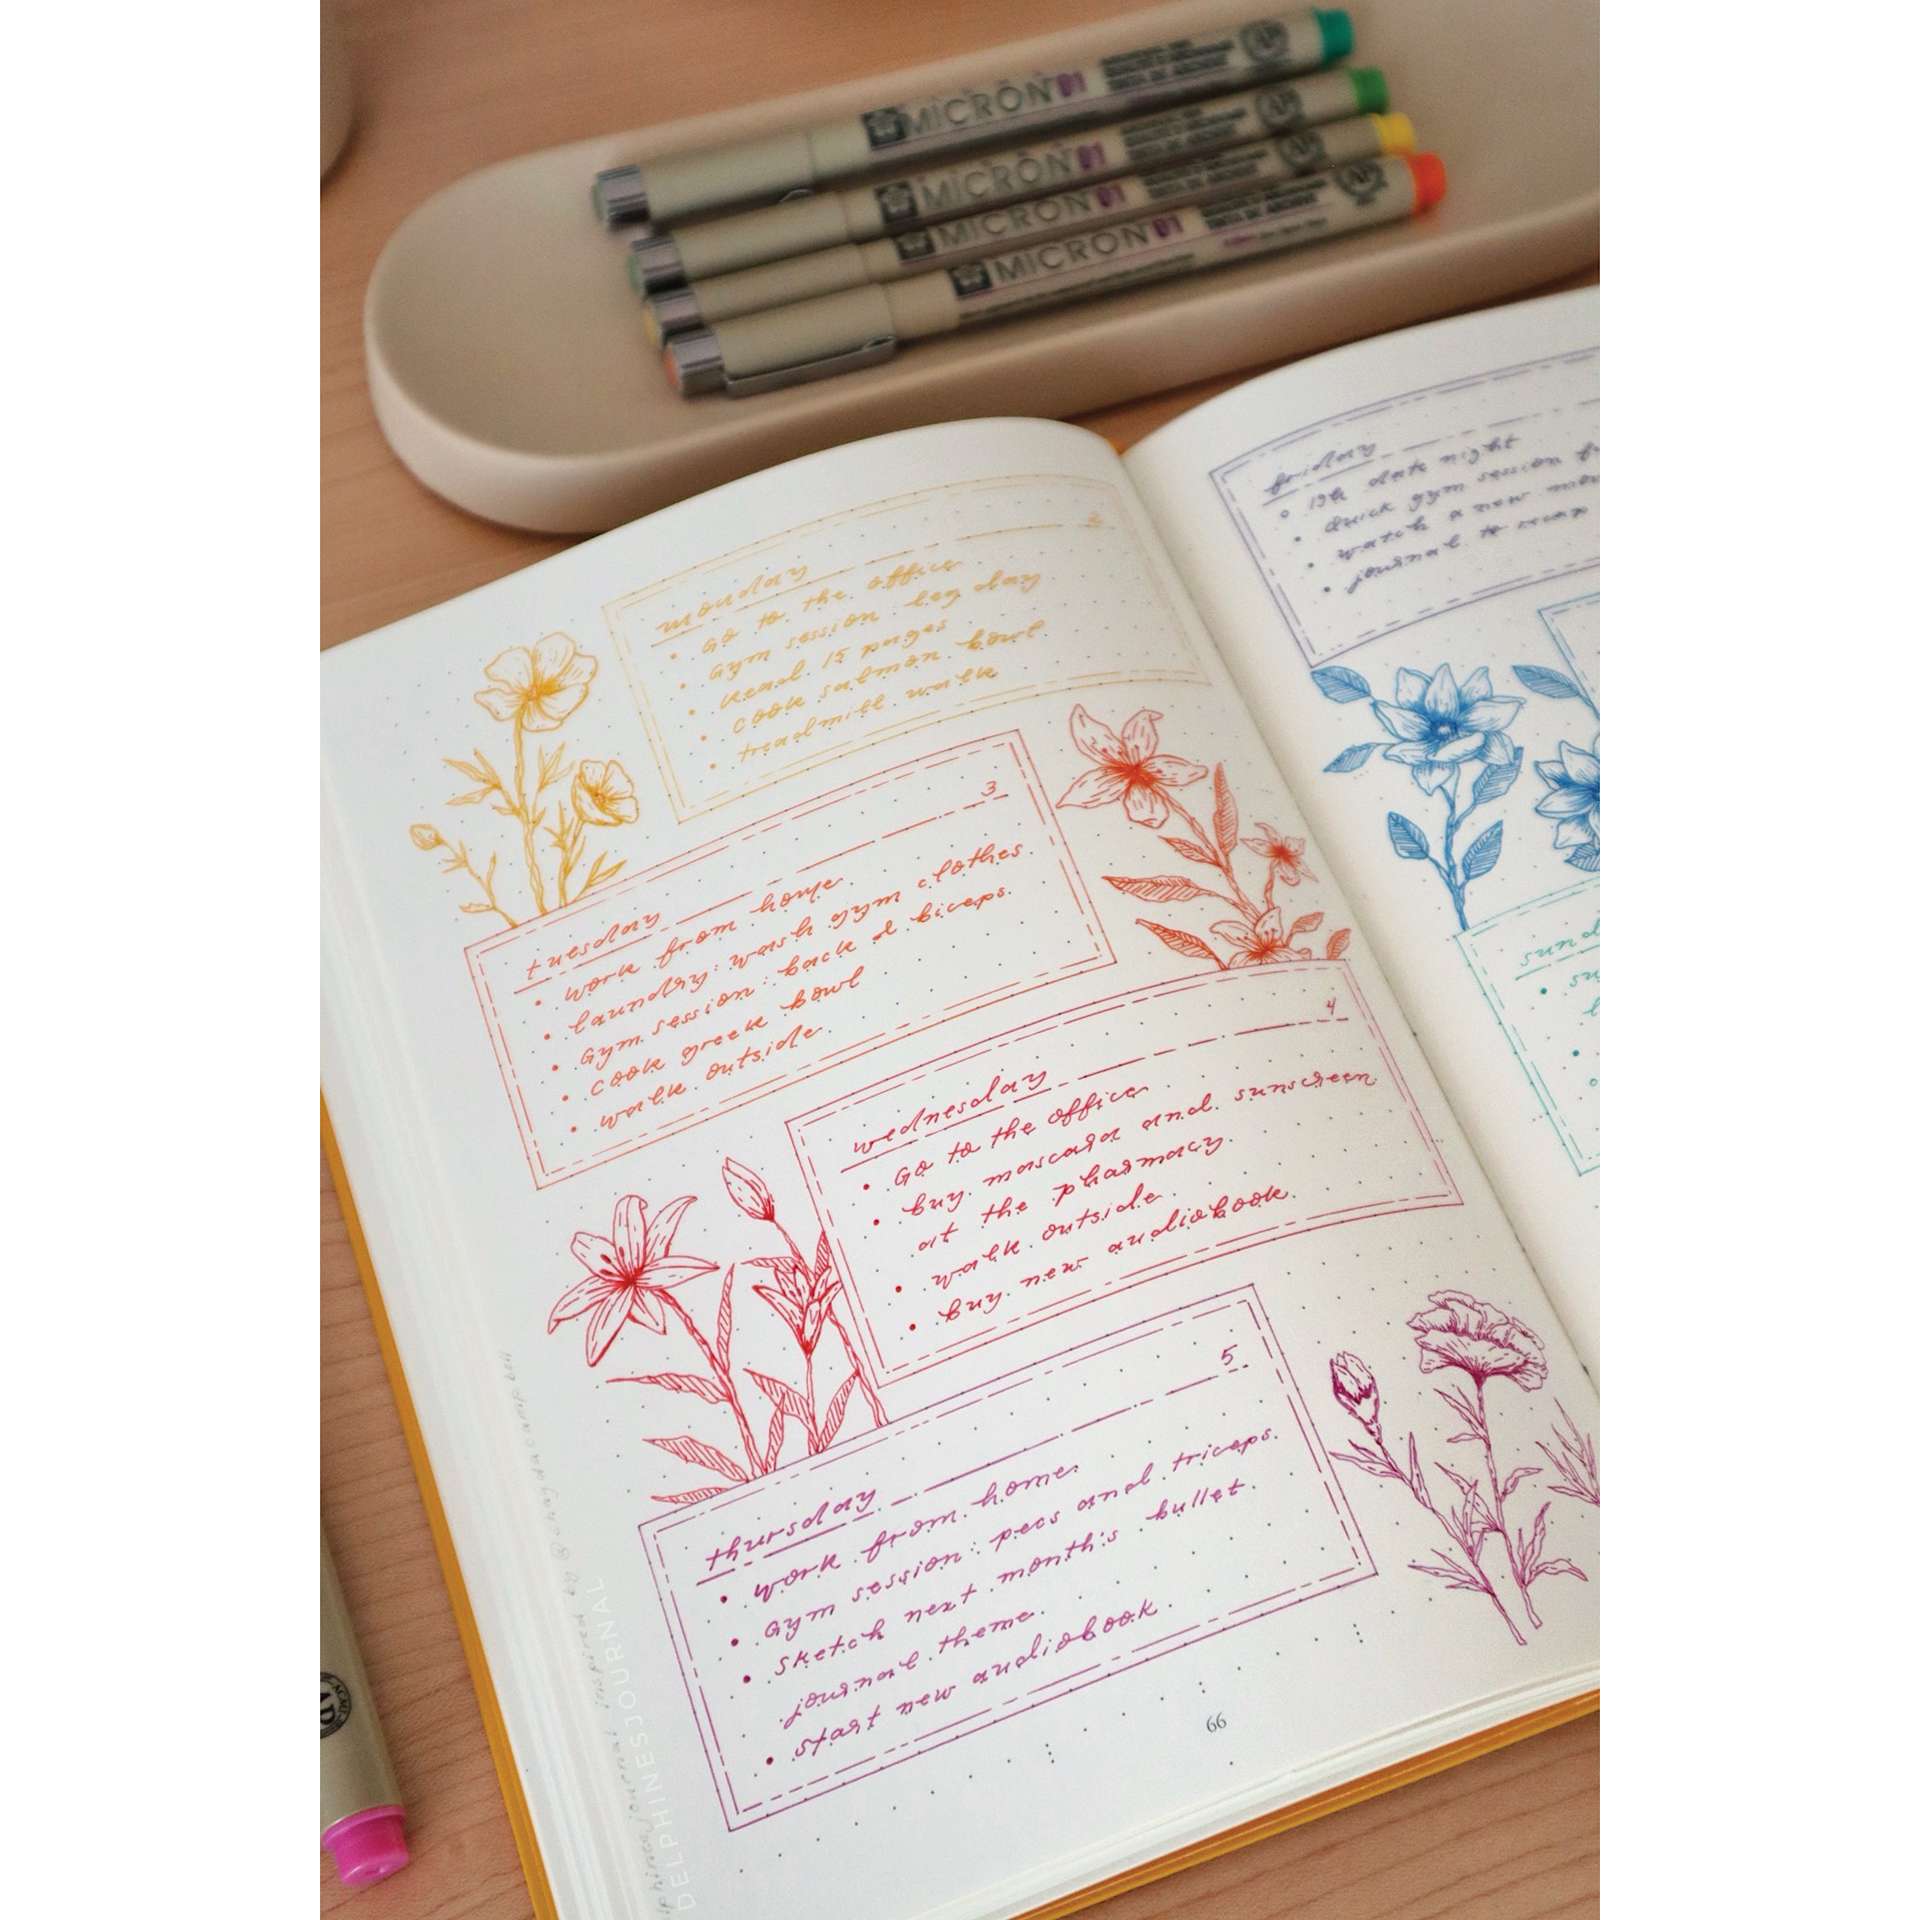 MICRON 01
MICRON 01
MICRON 01
MICRON 01
monday 2
• go to the office
• gym session leg day
• read 15 pages
• cook salmon bowl
• treadmill walk
tuesday 3
• work from home
• laundry: wash gym clothes
• gym session: back & biceps
• cook greek bowl
• walk outside
wednesday 4
• go to the office
• buy mascara and sunscreen
at the pharmacy
• walk outside
• buy new audiobook
thursday 5
• work from home
• gym session: pecs and triceps
• sketch next month's bullet
journal theme
• start new audiobook
66
friday
date night
• quick gym session
• watch a new
• journal to
inspired by
DELPHINESJOURNAL